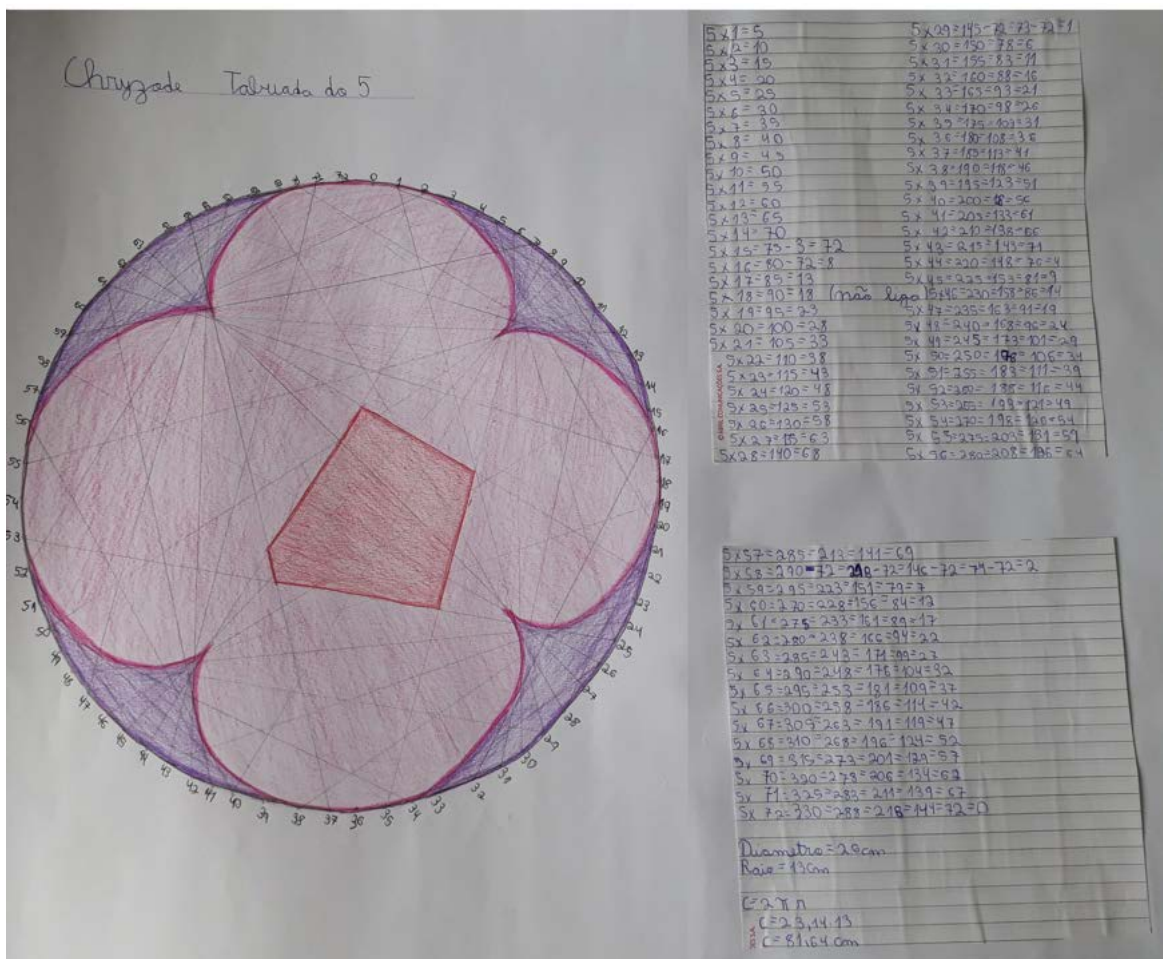 Chryzode Tabuada do 5
5x1=5
5x2=10
5x3=15
5x4=20
5x5=25
5x6=30
5x7=35
5x8=40
5x9=45
5x10=50
5x11=55
5x12=60
5x13=65
5x14=70
5x15=75-3=72
5x16=80-72=8
5x17=85=13
5x18=90=18 (não liga)
5x19=95=23
5x20=100=28
5x21=105=33
5x22=110=38
5x23=115=43
5x24=120=48
5x25=125=53
5x26=130=58
5x27= =63
5x28=140=68
5x29=145-72=73-72=1
5x30=150=78=6
5x31=155=83=11
5x32=160=88=16
5x33=165=93=21
5x34=170=98=26
5x35=175=103=31
5x36=180=108=36
5x37=185=113=41
5x38=190=118=46
5x39=195=123=51
5x40=200= =56
5x41=205=133=61
5x42=210=138=66
5x43=215=143=71
5x44=220=148=76=4
5x45=225=153=81=9
5x46=230=158=86=14
5x47=235=163=91=19
5x48=240=168=96=24
5x49=245=173=101=29
5x50=250=178=106=34
5x51=255=183=111=39
5x52=260=188=116=44
5x53=265=193=121=49
5x54=270=198=126=54
5x55=275=203=131=59
5x56=280=208=136=64
5x57=285=213=141=69
5x58=290-72=218-72=146-72=74-72=2
5x59=295=223=151=79=7
5x60=270=228=156=84=12
5x61=275=233=161=89=17
5x62=280=238=166=94=22
5x63=285=243=171=99=27
5x64=290=248=176=104=32
5x65=295=253=181=109=37
5x66=300=258=186=114=42
5x67=305=263=191=119=47
5x68=310=268=196=124=52
5x69=315=273=201=129=57
5x70=320=278=206=134=62
5x71=325=283=211=139=67
5x72=330=288=216=144=72=0
Diametro=26cm
Raio=13cm
C=2πr
C=2.3,14.13
C=81,64 cm